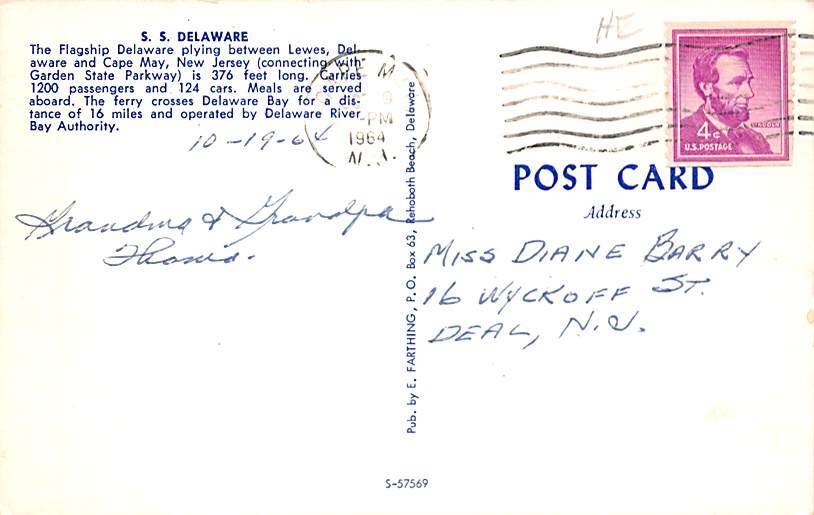 S. S. DELAWARE
The Flagship Delaware plying between Lewes, Del-
aware and Cape May, New Jersey (connecting with
Garden State Parkway) is 376 feet long. Carries
1200 passengers and 124 cars. Meals are served
aboard. The ferry crosses Delaware Bay for a dis-
tance of 16 miles and operated by Delaware River
Bay Authority.
10-19-64
PM
1964
N.J.
HE
LINCOLN
4¢
U.S. POSTAGE
POST CARD
Address
Grandma & Grandpa
MISS DIANE BARRY
16 WYCKOFF ST.
DEAL, N.J.
Pub. by E. FARTHING, P.O. Box 63, Rehoboth Beach, Delaware
S-57569